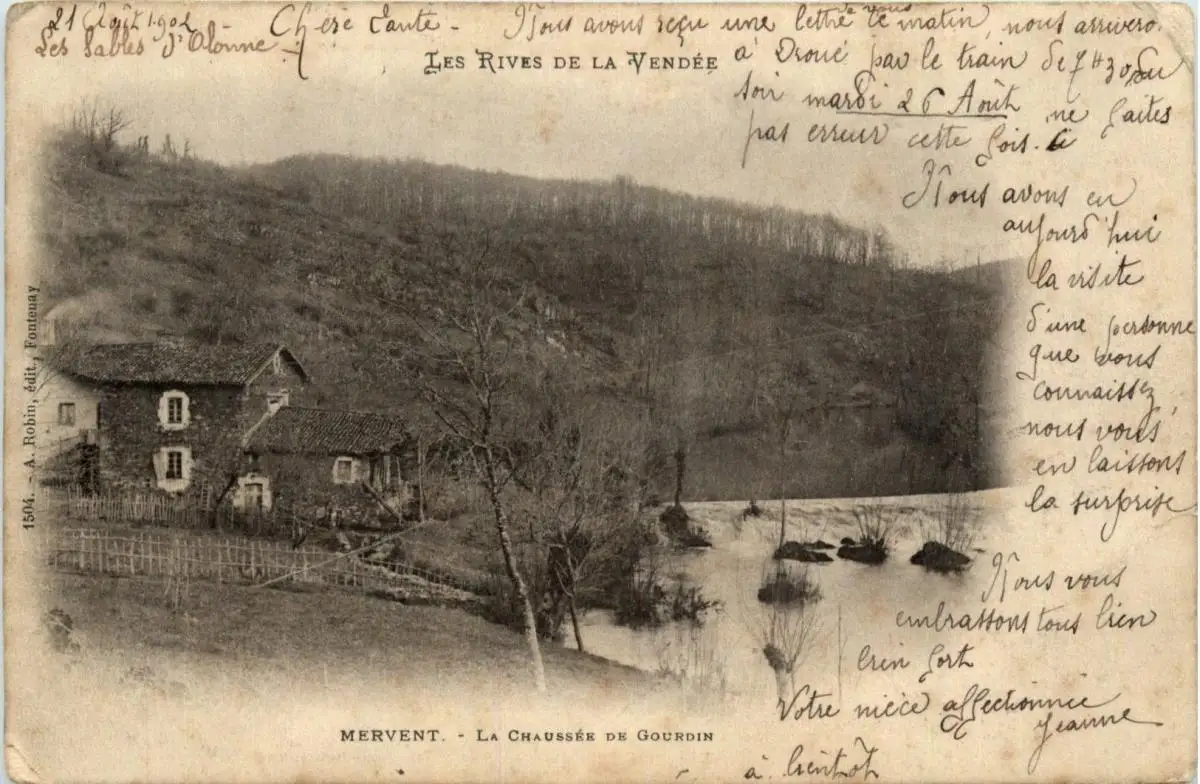 21 Août 1902 - Chère Tante - Nous avons reçu une lettre de vous ce matin, nous arrivero.
Les Sables d'Olonne -
à Droué par le train de 7H30 du
soir mardi 26 Août, ne faites
pas erreur cette fois.
LES RIVES DE LA VENDÉE
Nous avons eu
aujourd'hui
la visite
d'une personne
que vous
connaissez
nous vous
en laissons
la surprise
Nous vous
embrassons tous bien
bien fort
Votre nièce affectionnée
Jeanne
à bientôt
1504. - A. Robin, édit., Fontenay
MERVENT. - LA CHAUSSÉE DE GOURDIN